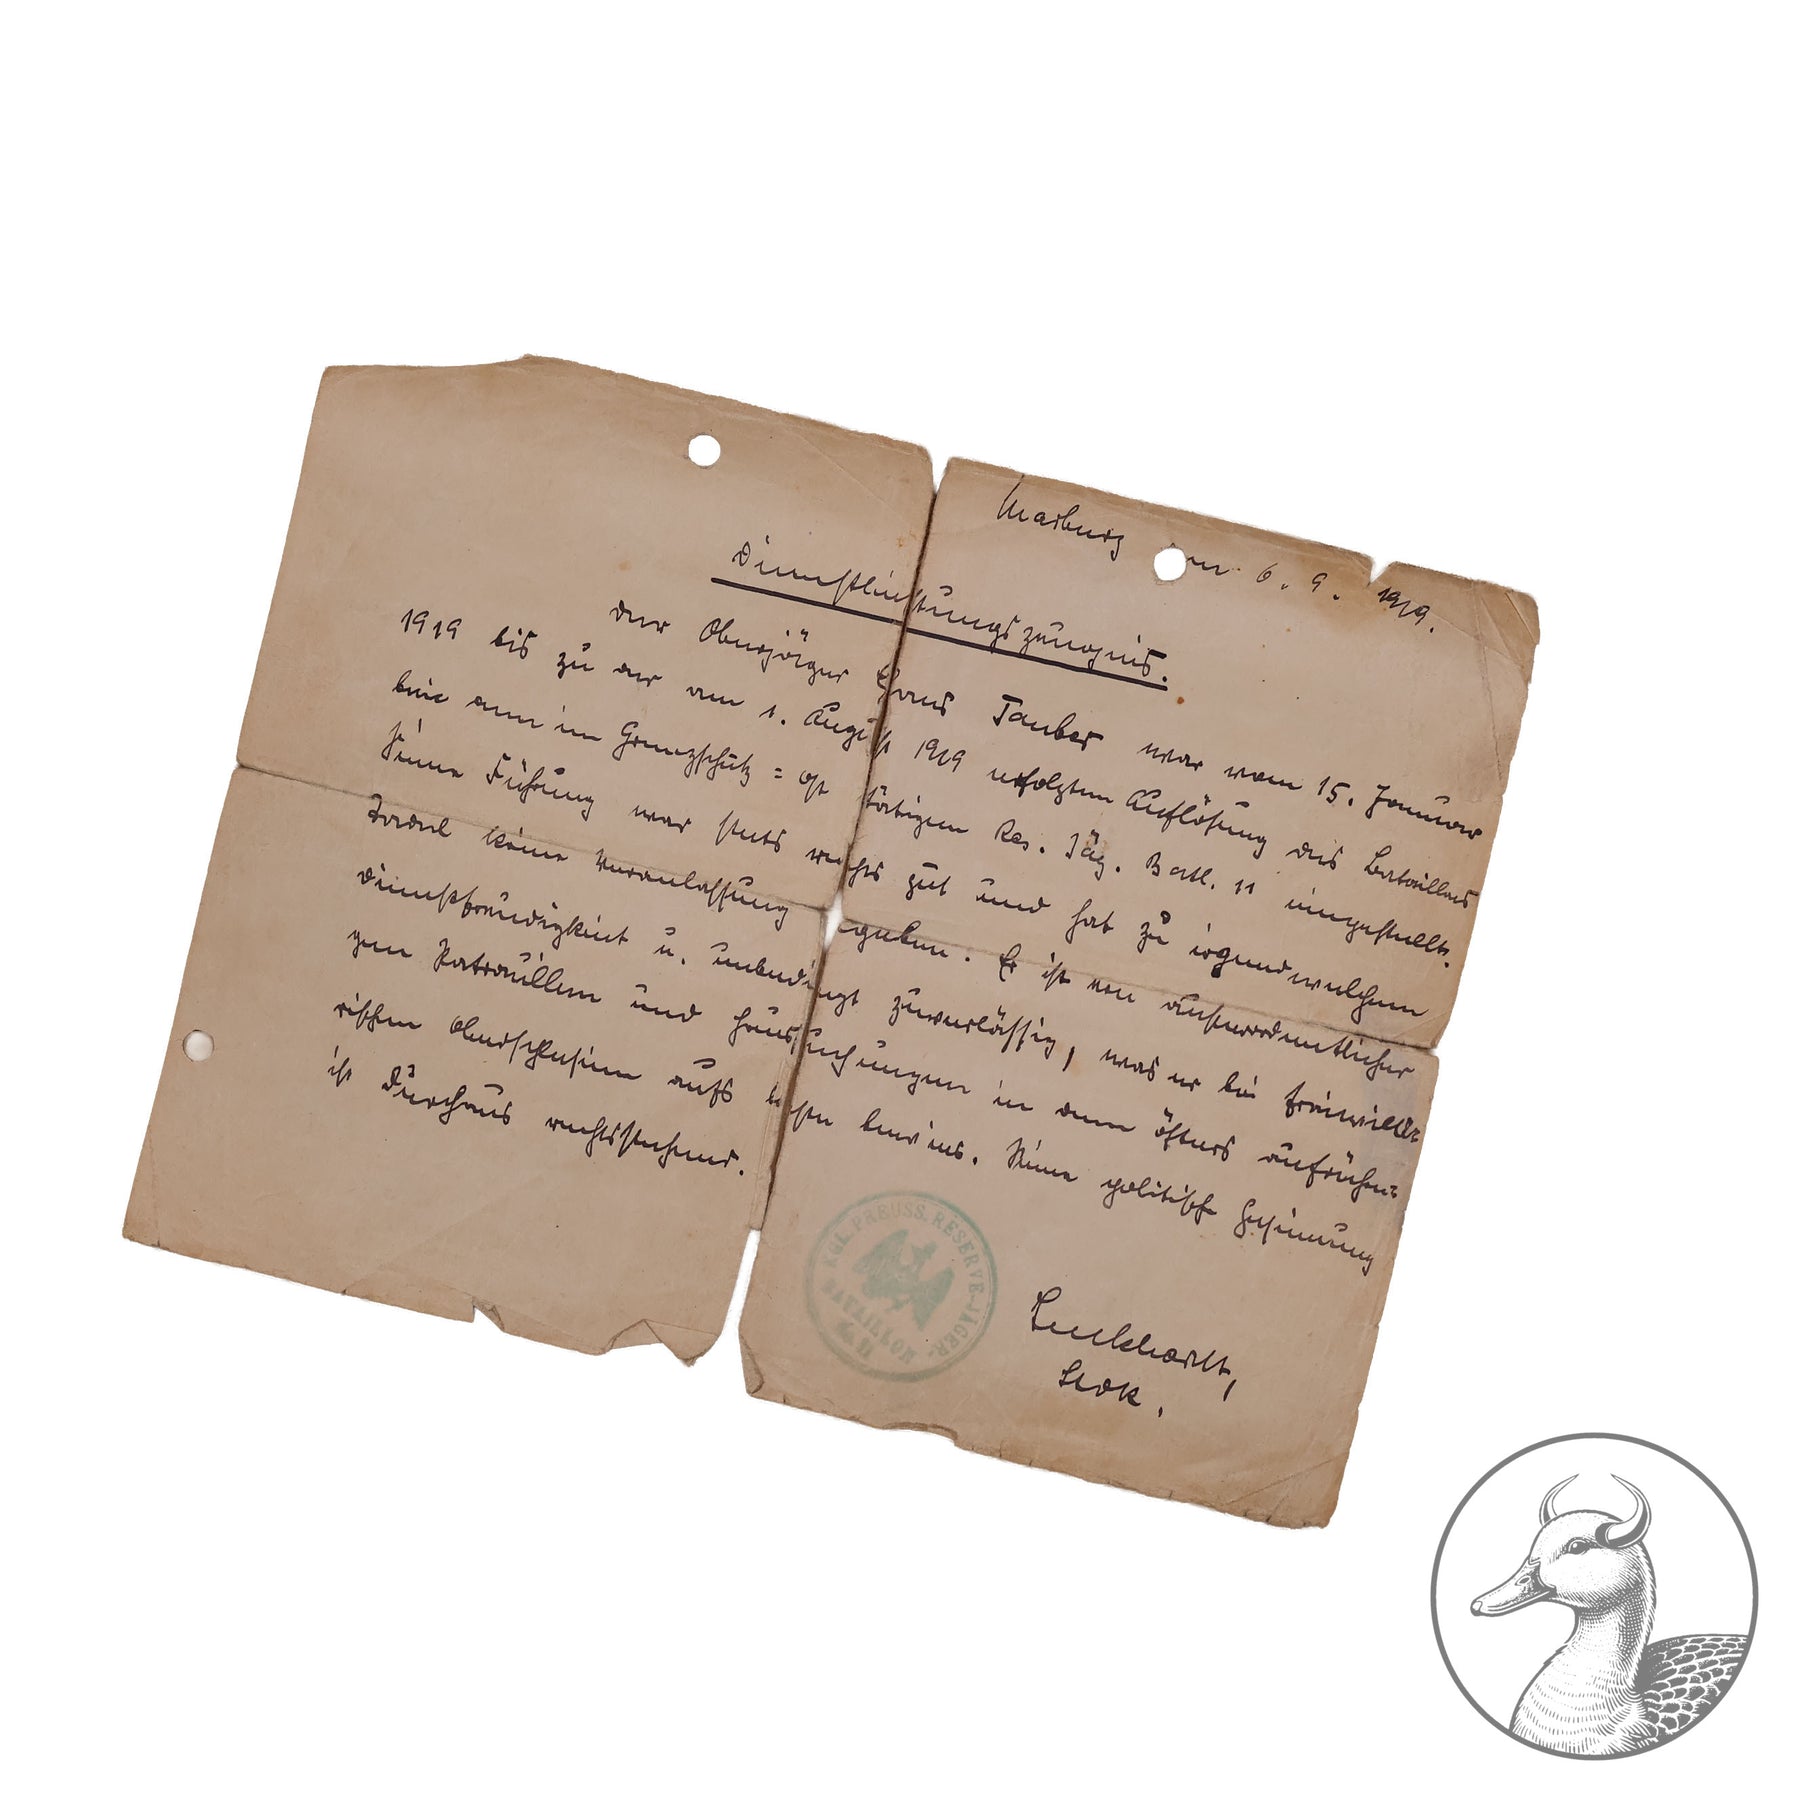 Marburg den 6. 9. 1919.
Dienstleistungszeugnis.
Der Oberjäger Hans Tauber war vom 15. Januar
1919 bis zu der am 1. August 1919 erfolgten Auflösung des Bataillons
bei dem im Grenzschutz=Ost tätigen Res. Jäg. Batl. 11 eingestellt.
Seine Führung war stets recht gut und hat zu irgendwelchem
Tadel keine Veranlassung gegeben. Er ist von außerordentlicher
Dienstfreudigkeit u. unbedingt zuverlässig, was er bei freiwilli=
gen Patrouillen und Haussuchungen in dem öfters aufrühre=
rischen Oberschlesien aufs beste bewies. Seine politische Gesinnung
ist durchaus rechtsstehend.
KGL. PREUSS. RESERVE-JÄGER-
BATAILLON
No 11